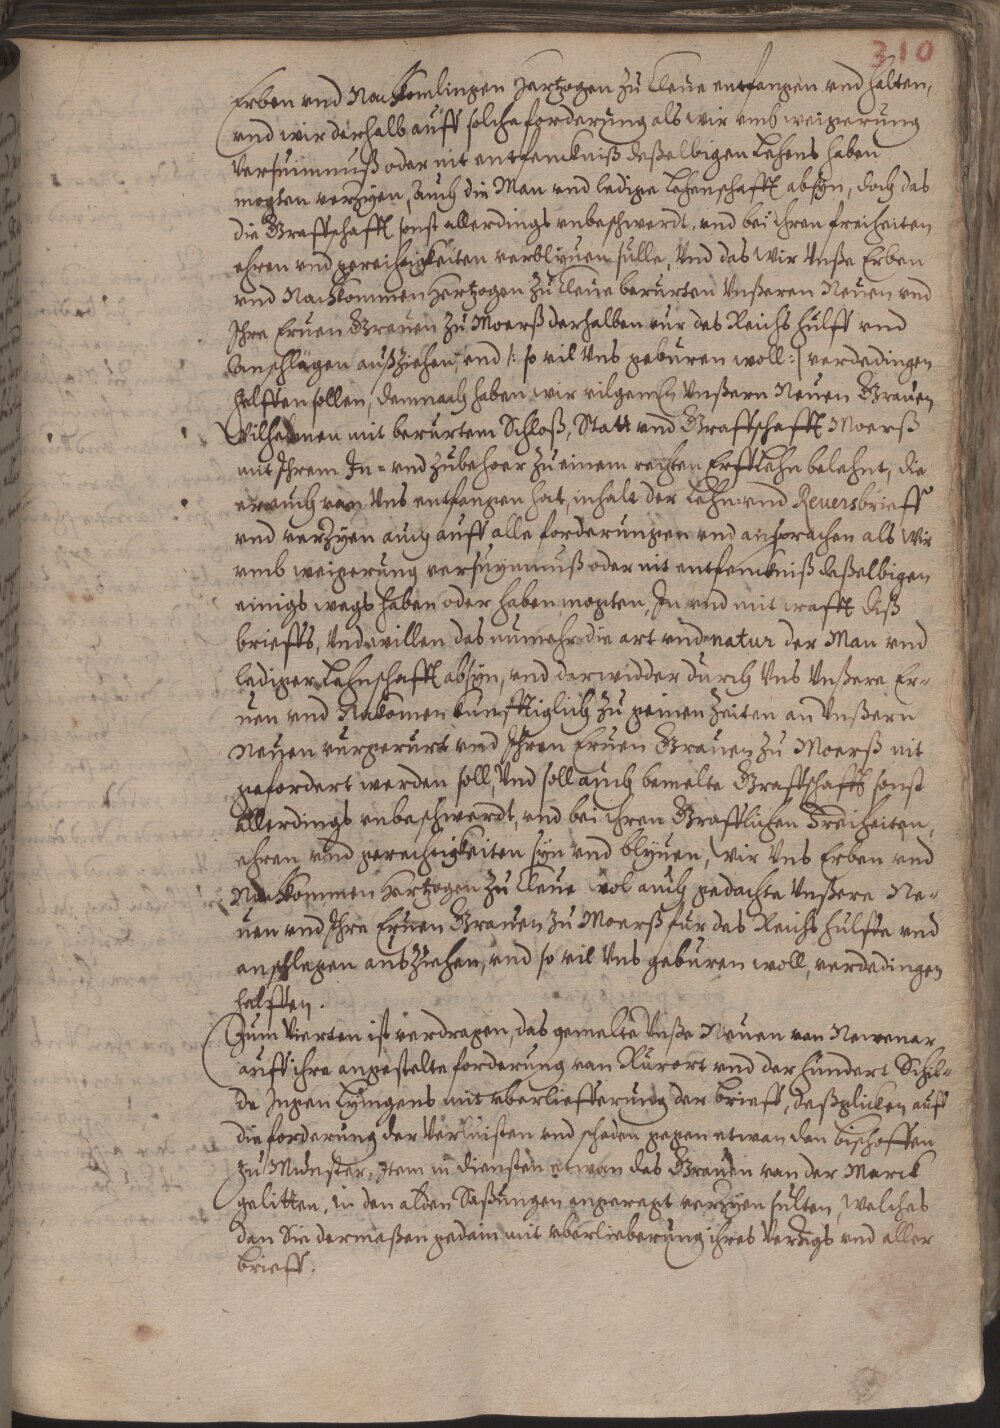 310
Erben vnd Nachkomlingen Hertzogen zu Cleue entfangen vnd halten,
vnd wir derhalb auff solche forderung als wir vmb weigerung
Versuimnuß oder nit entfenckniß deßelbigen Lehens haben
mogten verzyen, auch die Man vnd ledige Lehenschafft absyn, doch das
die Graffschafft sonst allerdings vnbeschwerdt, vnd bei ihren freiheiten
ehren vnd gereichtigkeiten verblyuen sulle, Vnd das wir Vnße Erben
vnd Nachkommen Hertzogen zu Cleue berurten Vnßeren Neuen vnd
Ihre Eruen Grauen zu Moerß derhalben vur des Reichs hulff vnd
Anschlagen außziehen, vnd /: so vil Vns geburen woll :/ verdedingen
helffen sollen, demnach haben wir vilgemelten Vnßern Neuen Grauen
Wilhelmen mit berurtem Schloß, Statt vnd Graffschafft Moerß
mit Ihrem In- vnd zubehoer zu einem rechten ErffLehn belehnt, die
er auch van Vns entfangen hat, inhalt der Lehn- vnd Reuersbrieff
vnd verzyen auch auff alle forderungen vnd ansprachen als wir
vmb weigerung versuymnuß oder nit entfencknuß deßelbigen
einigs wegs haben oder haben mogten, In vnd mit crafft diß
brieffs, Vnd willen das numehr die art vnd natur der Man vnd
lediger Lehnschafft absyn, vnd darwidder durch Vns Vnßere Er-
uen vnd Nakomen kunfftiglich zu geinen zeiten an Vnßern
Neuen vurgerurt vnd Ihren Eruen Grauen zu Moerß nit
gefordert werden soll, Vnd soll auch bemelte Graffschafft sonst
allerdings vnbeschwerdt, vnd bei ihren Grafflichen Freiheiten,
ehren vnd gerechtigkeiten syn vnd blyuen, Wir Vns Erben vnd
Nachkommen Hertzogen zu Cleue wol auch gedachte Vnßere Ne-
uen vnd Ihre Eruen Grauen zu Moerß fur des Reichs hulffe vnd
anschlegen ausziehen, vnd so vil Vns geburen woll, verdedingen
helffen.
Zum Vierten ist verdragen, das gemelte Vnße Neuen van Newenar
auff ihre angestelte forderung van Rurort vnd der hundert Schil-
de Ingen Lymgens mit vberliefferung der brieff, deßglicken auff
die forderung der Verluisten vnd schaden gegen etwan den bischoffen
zu Munster, Item in diensten etwan des Grauen van der Marck
gelitten, in den alden Saßungen angeregt verzyen sulten, welches
dan Sie dermaßen gedain mit vberlieberung ihres Verzigs vnd aller
brieff.